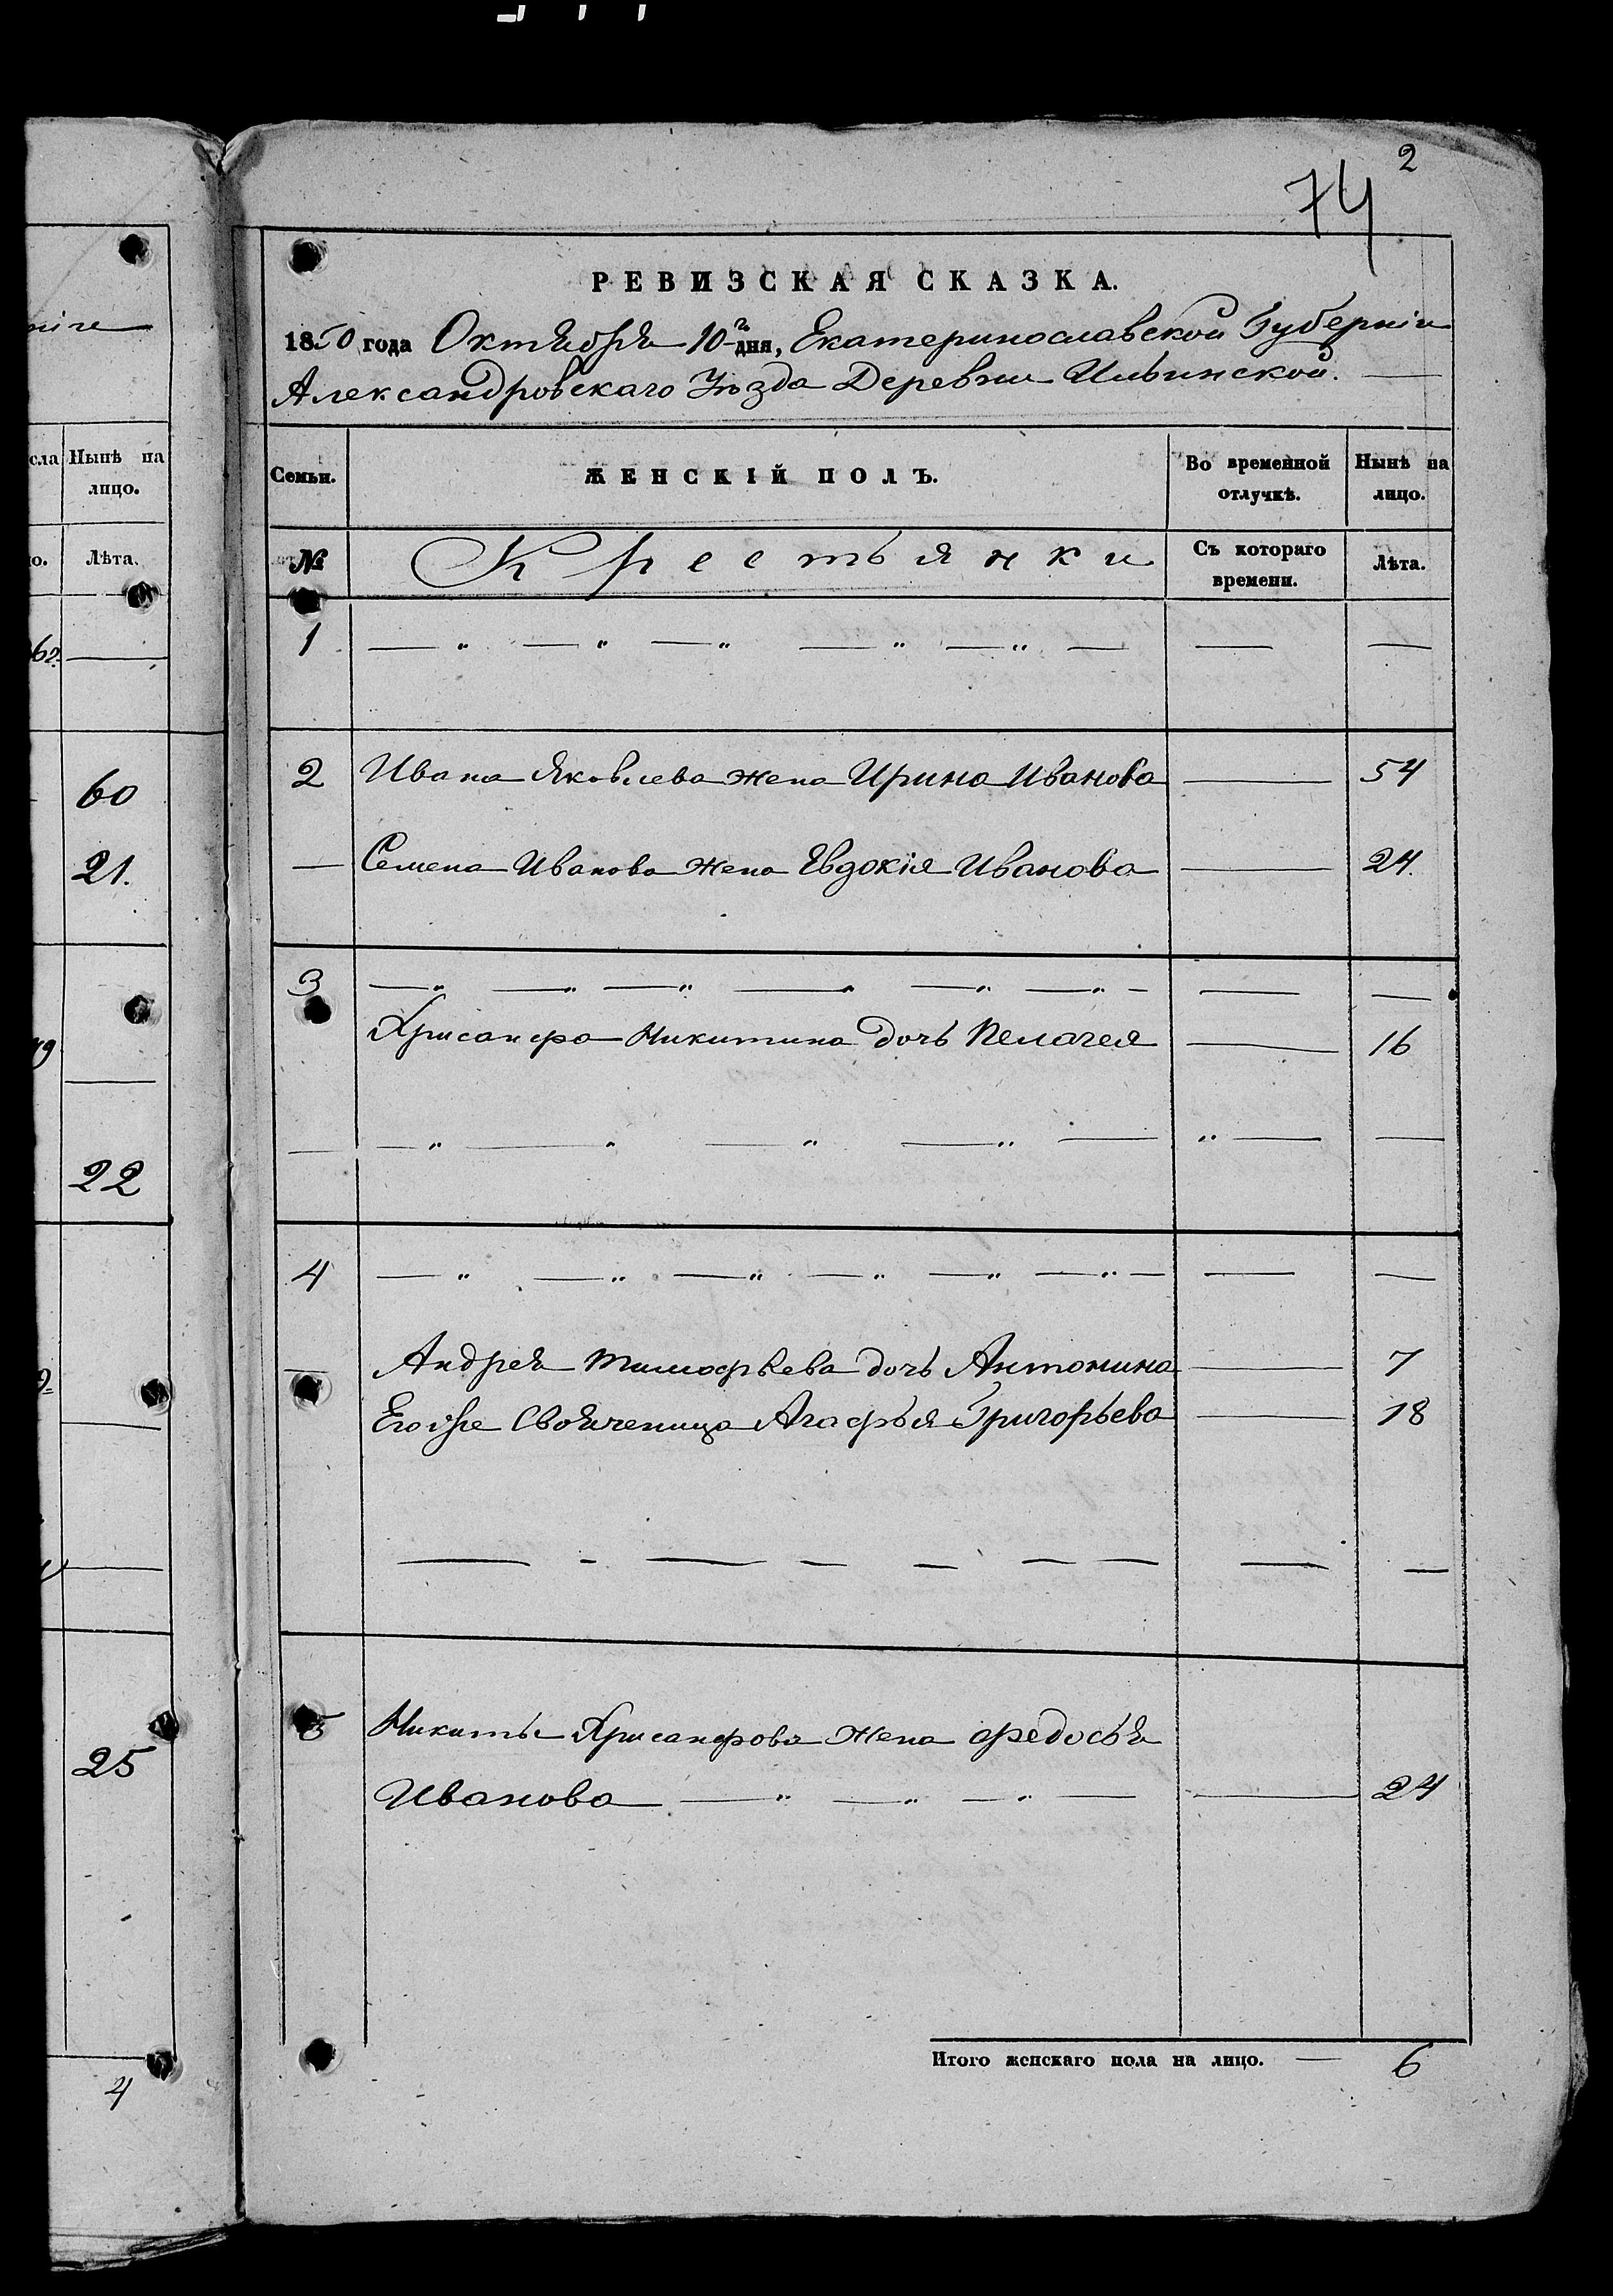 2
74
РЕВИЗСКАЯ СКАЗКА.
1850 года Октября 10го дня, Екатеринославской Губерніи
Александровскаго Уѣзда Деревни Ильинской. —
Нынѣ на лицо.
Семьи. ЖЕНСКІЙ ПОЛЪ. Во временной отлучкѣ. Нынѣ на лицо.
Лѣта.
№ Крестьянки Съ котораго времени. Лѣта.
1 — „ — „ — „ — „ — „ — — —
60
2 Ивана Яковлева жена Ирина Иванова — 54
21.
— Семена Иванова жена Евдокія Иванова — 24.
3 — „ — „ — „ — „ — „ — „ — — —
Хрисанфа Никитина дочь Пелагея — 16
— — „ — „ — „ — „ — „ — —
22
4 — „ — „ — „ — „ — „ — „ — — —
— Андрея Тимофѣева дочь Антонина — 7
Егоже Свояченица Агафья Григорьева — 18
— - — — — — — — —
5 Никиты Хрисанфова жена Федосья
25
Иванова — „ — „ — „ — — 24
Итого женскаго пола на лицо. — 6
4